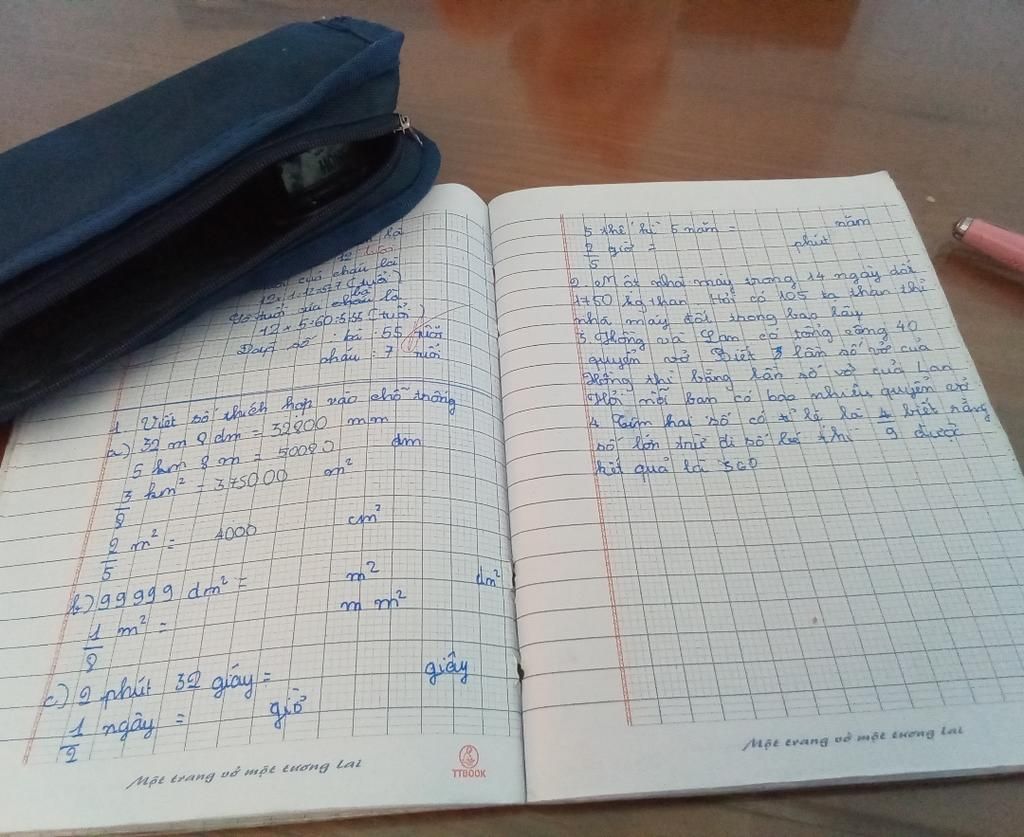 12
của cháu là
12 × 1 - 12 : 5 = 7 (tuổi)
của cháu là
12 × 5 : 60 : 5 = 55 (tuổi)
Đáp số : bà : 55 tuổi
cháu : 7 tuổi
1 Viết số thích hợp vào chỗ trống
a) 32 m 8 dm = 32800 mm
5 km 8 m = 50080 dm
3/8 km² = 375000 m²
2/5 m² = 4000 cm²
b) 99999 dm² = m² dm²
1/8 m² = m m²
c) 2 phút 32 giây = giây
1/2 ngày = giờ
Một trang vở một tương lai
TTBOOK
5 thế kỉ 5 năm = năm
2/5 giờ = phút
2 Một nhà máy trong 14 ngày đốt
1750 kg than Hỏi có 105 tạ than thì
nhà máy đốt trong bao lâu
3 Hồng và Lan có tổng cộng 40
quyển vở Biết 3 lần số vở của
Hồng thì bằng lần số vở của Lan
Hỏi mỗi bạn có bao nhiêu quyển vở
4 Tìm hai số có tỉ lệ là 4/9 biết rằng
số lớn trừ đi số bé thì được
kết quả là 360
Một trang vở một tương lai